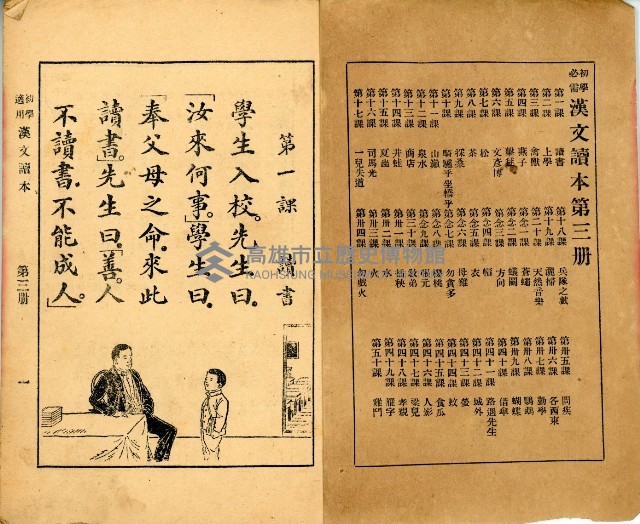 初學必需 漢文讀本第三冊
第一課 讀書
第二課 上學
第三課 禽獸
第四課 燕子
第五課
第六課 文彥博
第七課 松
第八課 茶
第九課
第十課 騎驢乎坐轎乎
第十一課
第十二課 泉水
第十三課 商店
第十四課 井蛙
第十五課
第十六課 司馬光
第十七課 一兒失道
第十八課 兵隊之戲
第十九課 灑掃
第二十課 天然音樂
第念一課 蒼蠅
第念二課 蟻鬬
第念三課 方向
第念四課 稻
第念五課 衣
第念六課 母雞
第念七課 勿貪多
第念八課 櫻桃
第念九課 張元
第三十課
第卅一課 插秧
第卅二課 水
第卅三課 火
第卅四課 勿戲火
第卅五課 問疾
第卅六課 各西東
第卅七課 勤學
第卅八課 鸚鵡
第卅九課 蝴蝶
第四十課 借傘
第四十一課 路遇先生
第四十二課 城外
第四十三課 螢
第四十四課 蚊
第四十五課 食瓜
第四十六課 人影
第四十七課
第四十八課 孝親
第四十九課 雁字
第五十課 雞鬥
第一課 讀書
學生入校。先生曰。
「汝來何事。」學生曰。
「奉父母之命。來此
讀書。」先生曰。「善。人
不讀書。不能成人。」
初學適用 漢文讀本 第三冊 一
高雄市立歷史博物館
KAOHSIUNG MUSEUM OF HISTORY